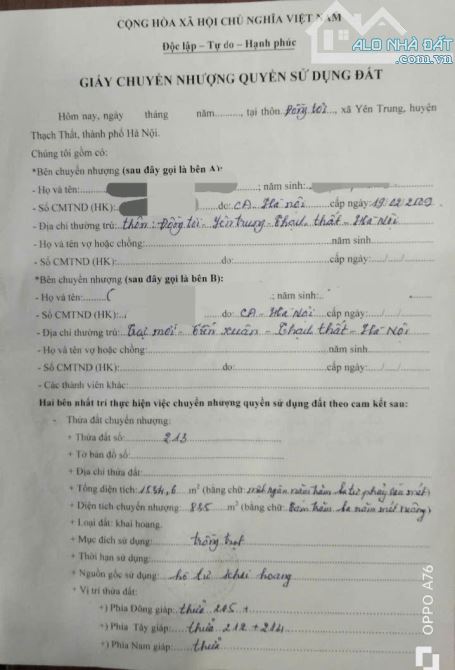 CỘNG HÒA XÃ HỘI CHỦ NGHĨA VIỆT NAM
Độc lập – Tự do – Hạnh phúc
ALO NHÀ ĐẤT
.com.vn
GIẤY CHUYỂN NHƯỢNG QUYỀN SỬ DỤNG ĐẤT
Hôm nay, ngày tháng năm........., tại thôn Đồng tơi..., xã Yên Trung, huyện
Thạch Thất, thành phố Hà Nội.
Chúng tôi gồm có:
*Bên chuyển nhượng (sau đây gọi là bên A):
- Họ và tên: ; năm sinh:
- Số CMTND (HK): do: CA Hà nội cấp ngày
- Địa chỉ thường trú: thôn: Đồng tơi - Yên trung - Thạch thất - Hà Nội
- Họ và tên vợ hoặc chồng: năm sinh
- Số CMTND (HK): do: cấp ngày / /
*Bên chuyển nhượng (sau đây gọi là bên B):
- Họ và tên: ; năm sinh:
- Số CMTND (HK): do: CA - Hà Nội cấp ngày / /
- Địa chỉ thường trú: Trại mới - Tiến xuân - Thạch thất - Hà Nội
- Họ và tên vợ hoặc chồng: năm sinh
- Số CMTND (HK): do: cấp ngày / /
- Các thành viên khác:
Hai bên nhất trí thực hiện việc chuyển nhượng quyền sử dụng đất theo cam kết sau:
- Thửa đất chuyển nhượng:
+ Thửa đất số: 213
+ Tờ bản đồ số:
+ Địa chỉ thửa đất:
+ Tổng diện tích: 1534,6 m² (bằng chữ: một ngàn năm trăm ba tư phảy sáu mét)
+ Diện tích chuyển nhượng: 835 m² (bằng chữ: Tám trăm ba năm mét vuông)
+ Loại đất: khai hoang.
+ Mục đích sử dụng: trồng trọt
+ Thời hạn sử dụng:
+ Nguồn gốc sử dụng: hộ tự khai hoang
+ Vị trí thửa đất:
+) Phía Đông giáp: thửa 215 +
+) Phía Tây giáp: thửa 212 + 214
+) Phía Nam giáp: thửa
OPPO A76